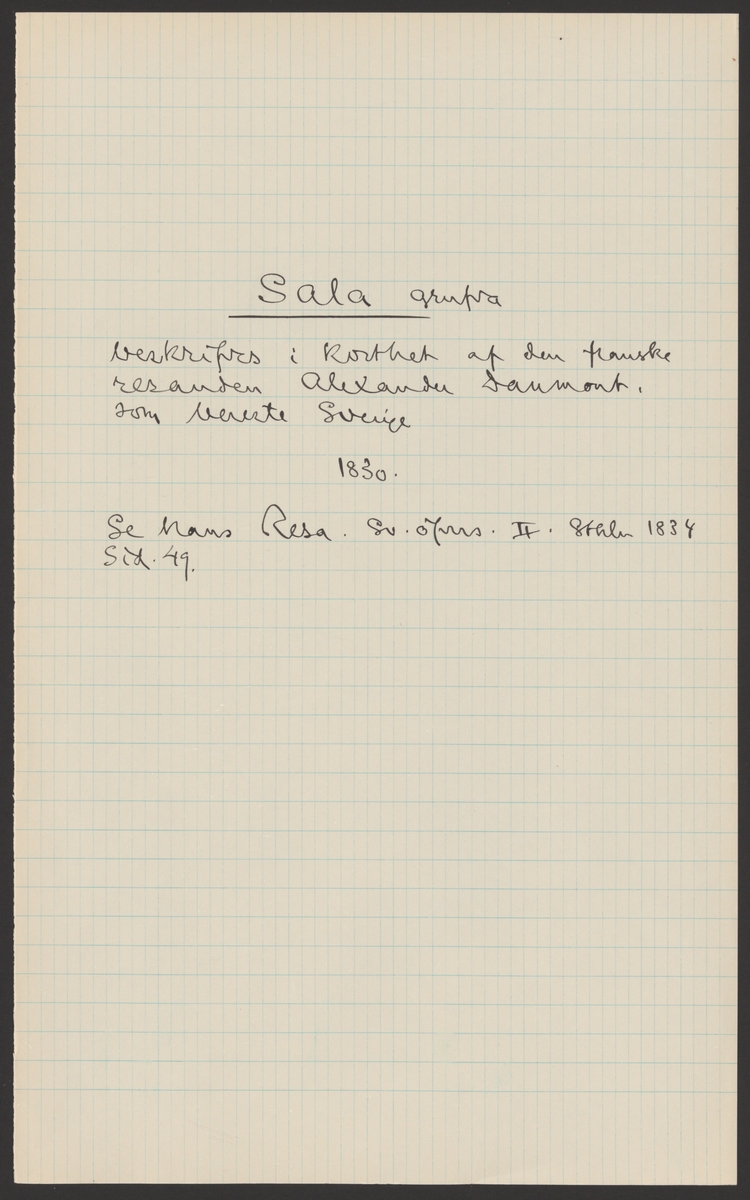 Sala grufva
beskrifves i korthet af den franske
resanden Alexander Daumont,
som bereste Sverige
1830.
Se hans Resa. Sv. öfvers. II. Sthlm 1834
Sid. 49.